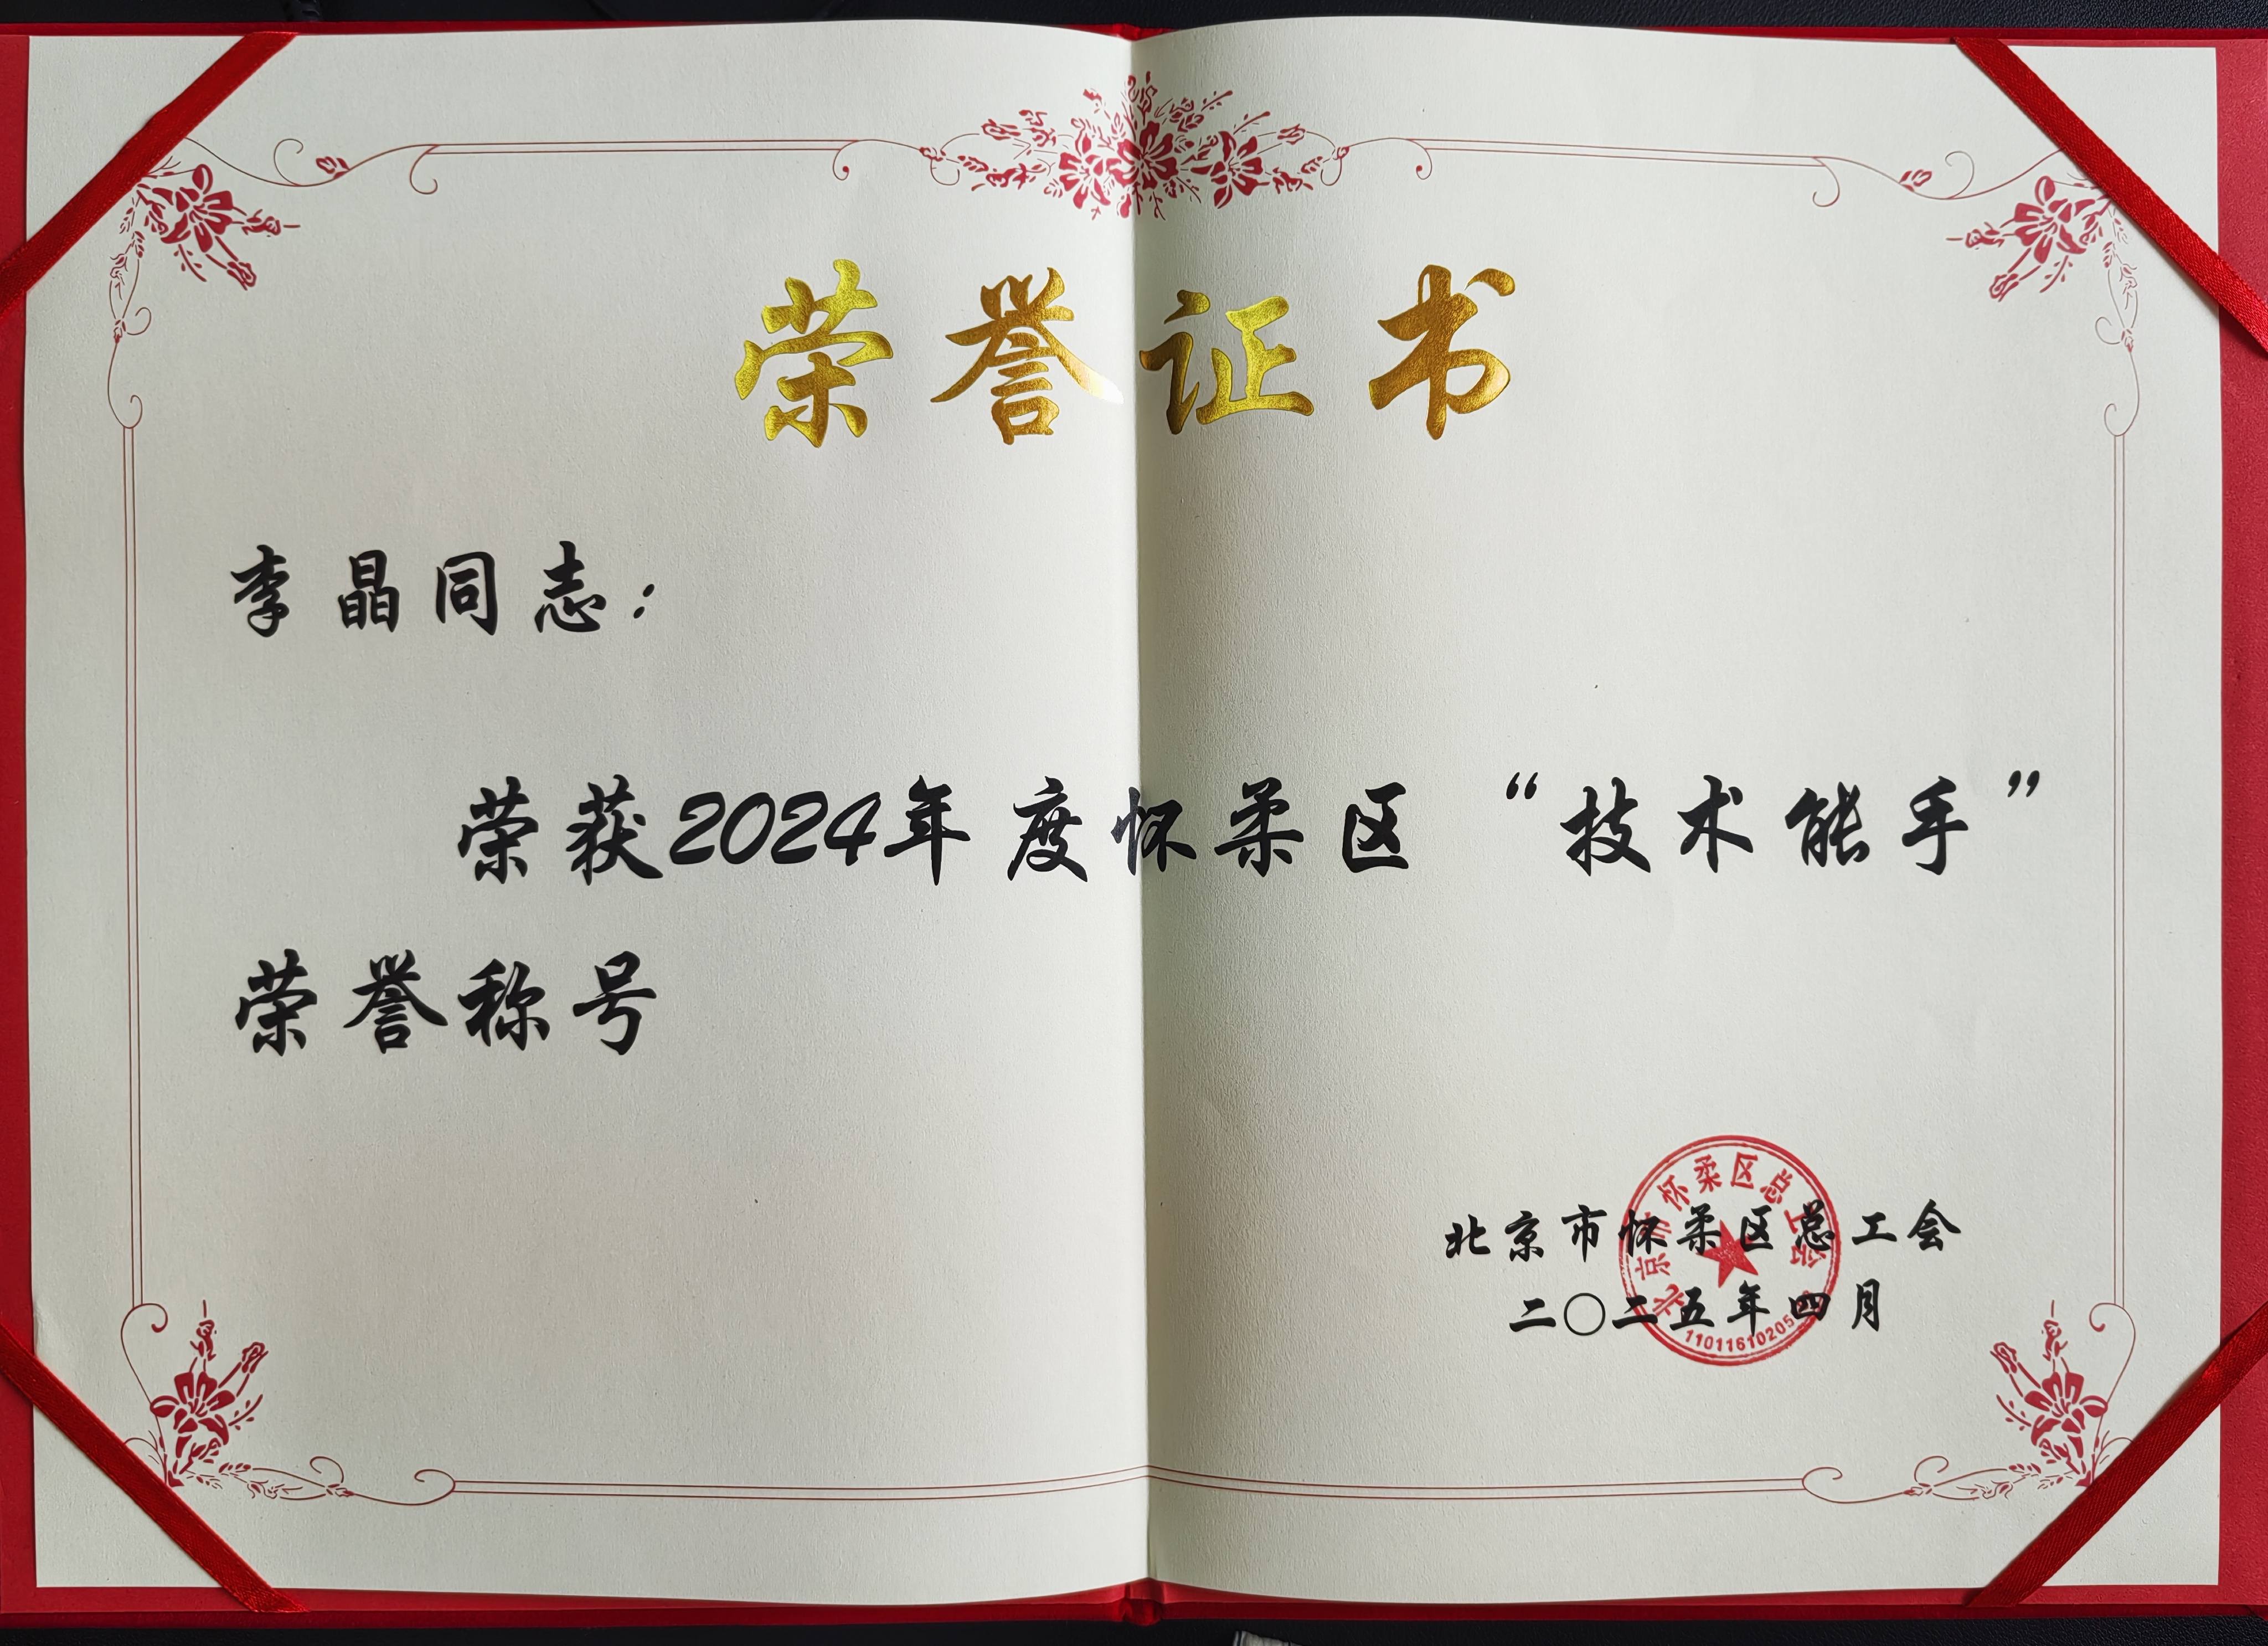 荣誉证书
李晶同志：
荣获2024年度怀柔区“技术能手”
荣誉称号
北京市怀柔区总工会
二〇二五年四月
北京市怀柔区总工会